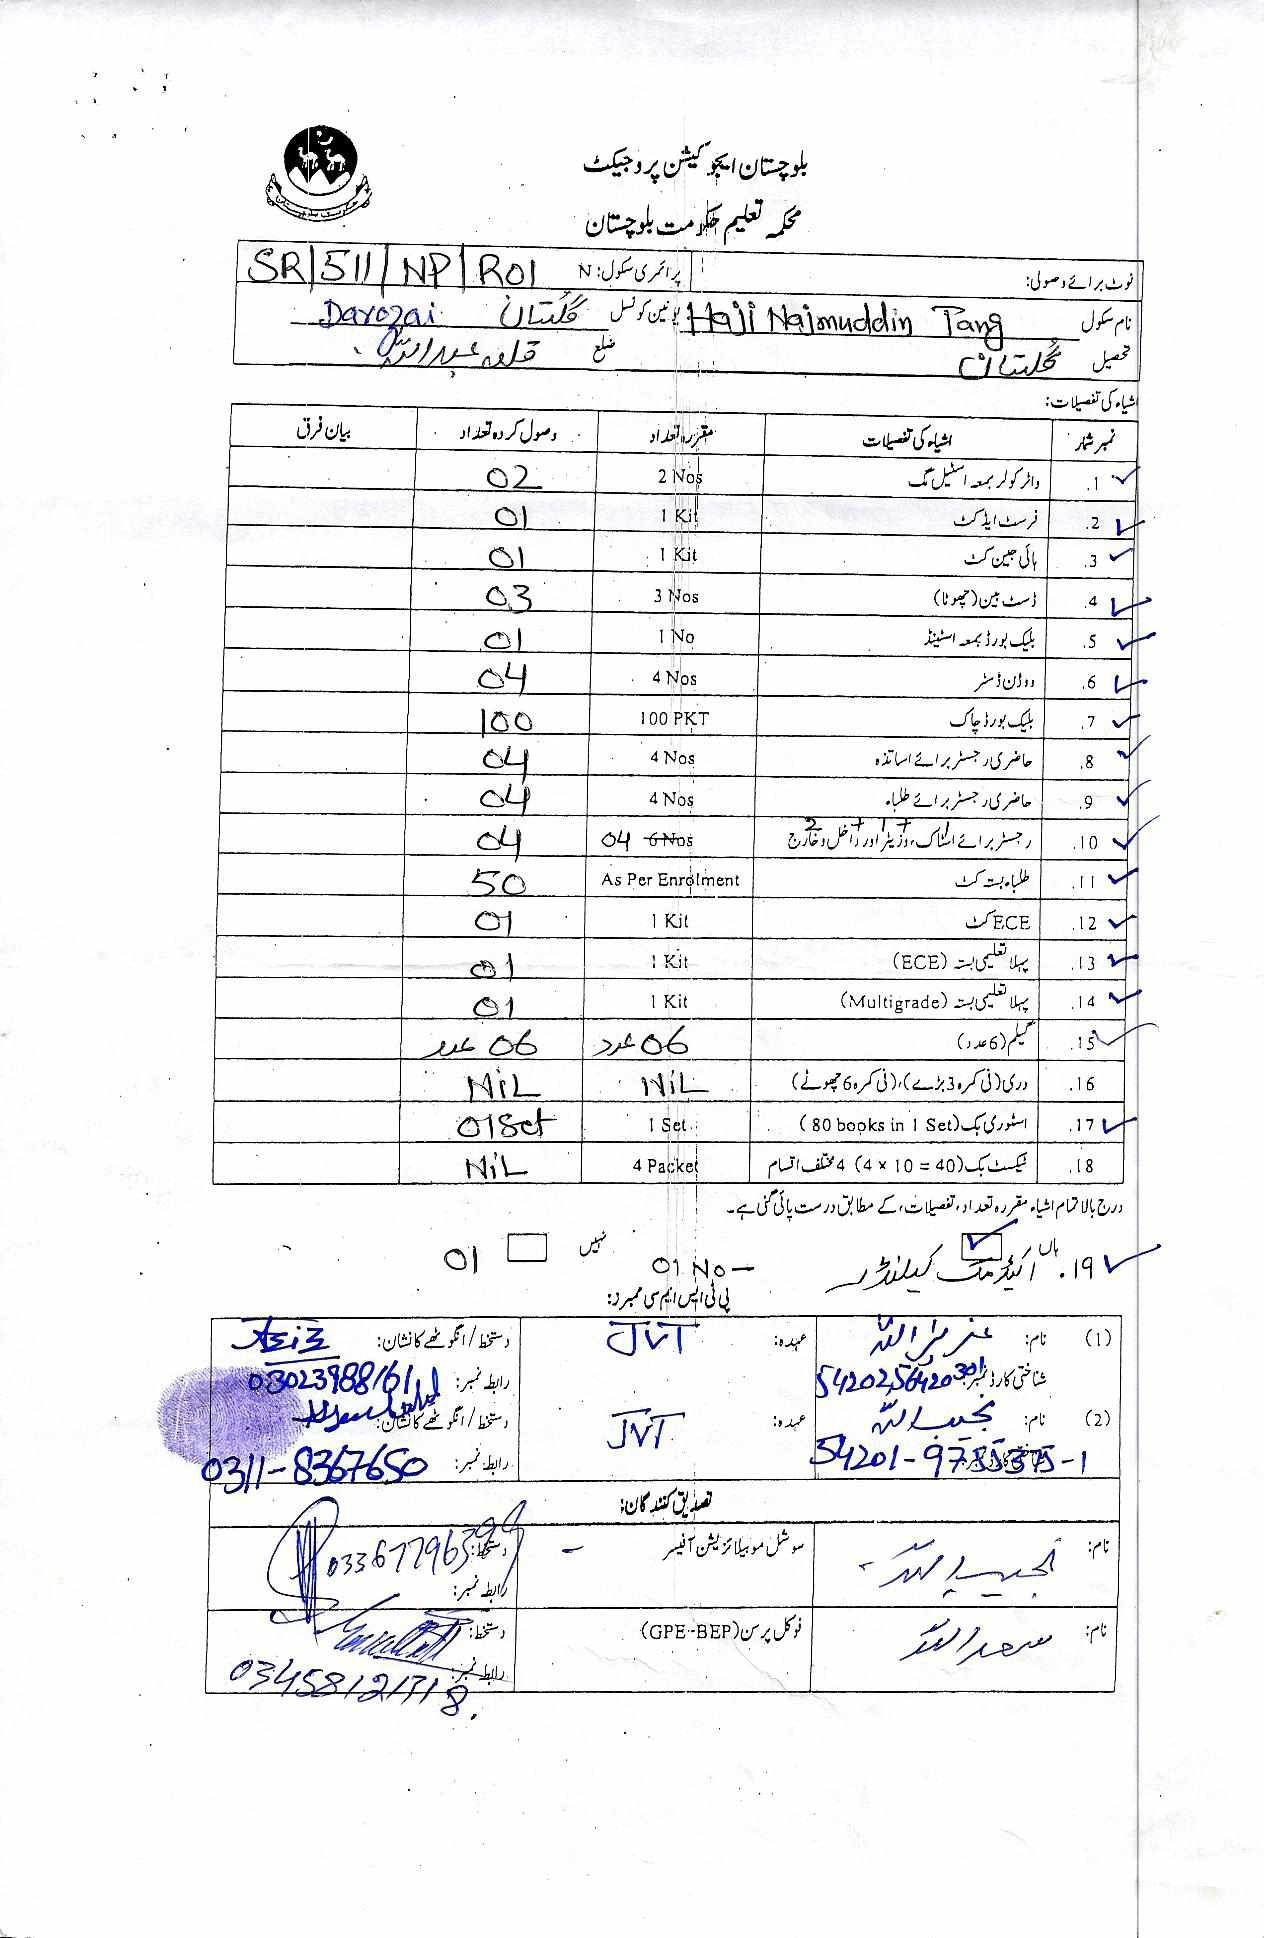 بلوچستان ایجوکیشن پروجیکٹ
محکمہ تعلیم حکومت بلوچستان
نوٹ برائے وصولی: پرائمری سکول: N SR/511/NP/R01
نام سکول Haji Najmuddin Tang یونین کونسل گلستان Darozai
تحصیل گلستان ضلع قلعہ عبداللہ
اشیاء کی تفصیلات:
نمبر شمار اشیاء کی تفصیلات مقررہ تعداد وصول کردہ تعداد بیان فرق
1. واٹر کولر بمعہ اسٹیل مگ 2 Nos 02
2. فرسٹ ایڈ کٹ 1 Kit 01
3. ہائی جین کٹ 1 Kit 01
4. ڈسٹ بین (چھوٹا) 3 Nos 03
5. بلیک بورڈ بمعہ اسٹینڈ 1 No 01
6. ووڈن ڈسٹر 4 Nos 04
7. بلیک بورڈ چاک 100 PKT 100
8. حاضری رجسٹر برائے اساتذہ 4 Nos 04
9. حاضری رجسٹر برائے طلباء 4 Nos 04
10. رجسٹر برائے اسٹاک، وزیٹر اور داخل و خارج 2 + 1 + 1 04 6 Nos 04
11. طلباء بستہ کٹ As Per Enrolment 50
12. ECE کٹ 1 Kit 01
13. پہلا تعلیمی بستہ (ECE) 1 Kit 01
14. پہلا تعلیمی بستہ (Multigrade) 1 Kit 01
15. گلیم (6 عدد) 06 عدد 06 عدد
16. دری (فی کمرہ 3 بڑے)، (فی کمرہ 6 چھوٹے) NiL NiL
17. اسٹوری بک (80 books in 1 Set) 1 Set 01 Set
18. ٹیکسٹ بک (4 × 10 = 40) 4 مختلف اقسام 4 Packet NiL
درج بالا تمام اشیاء مقررہ تعداد، تفصیلات، کے مطابق درست پائی گئی ہے۔
ہاں نہیں
19. اکیڈمک کیلنڈر 01 No – 01
پی ٹی ایس ایم سی ممبرز:
(1) نام: عزیز اللہ عہدہ: JVT دستخط/انگوٹھے کا نشان: Aziz
شناختی کارڈ نمبر: رابطہ نمبر:
(2) نام: نجیب اللہ عہدہ: JVT دستخط/انگوٹھے کا نشان:
54201-9755375-1 رابطہ نمبر: 0311-8367650
تصدیق کنندگان:
نام: نجیب اللہ سوشل موبیلائزیشن آفیسر – دستخط:
رابطہ نمبر:
نام: سعد اللہ فوکل پرسن (GPE-BEP) دستخط:
رابطہ نمبر: 03458121318